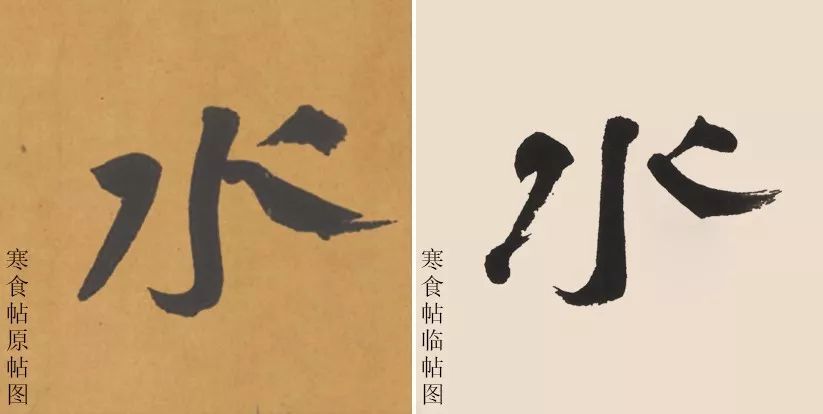 水
寒食帖原帖图
水
寒食帖临帖图